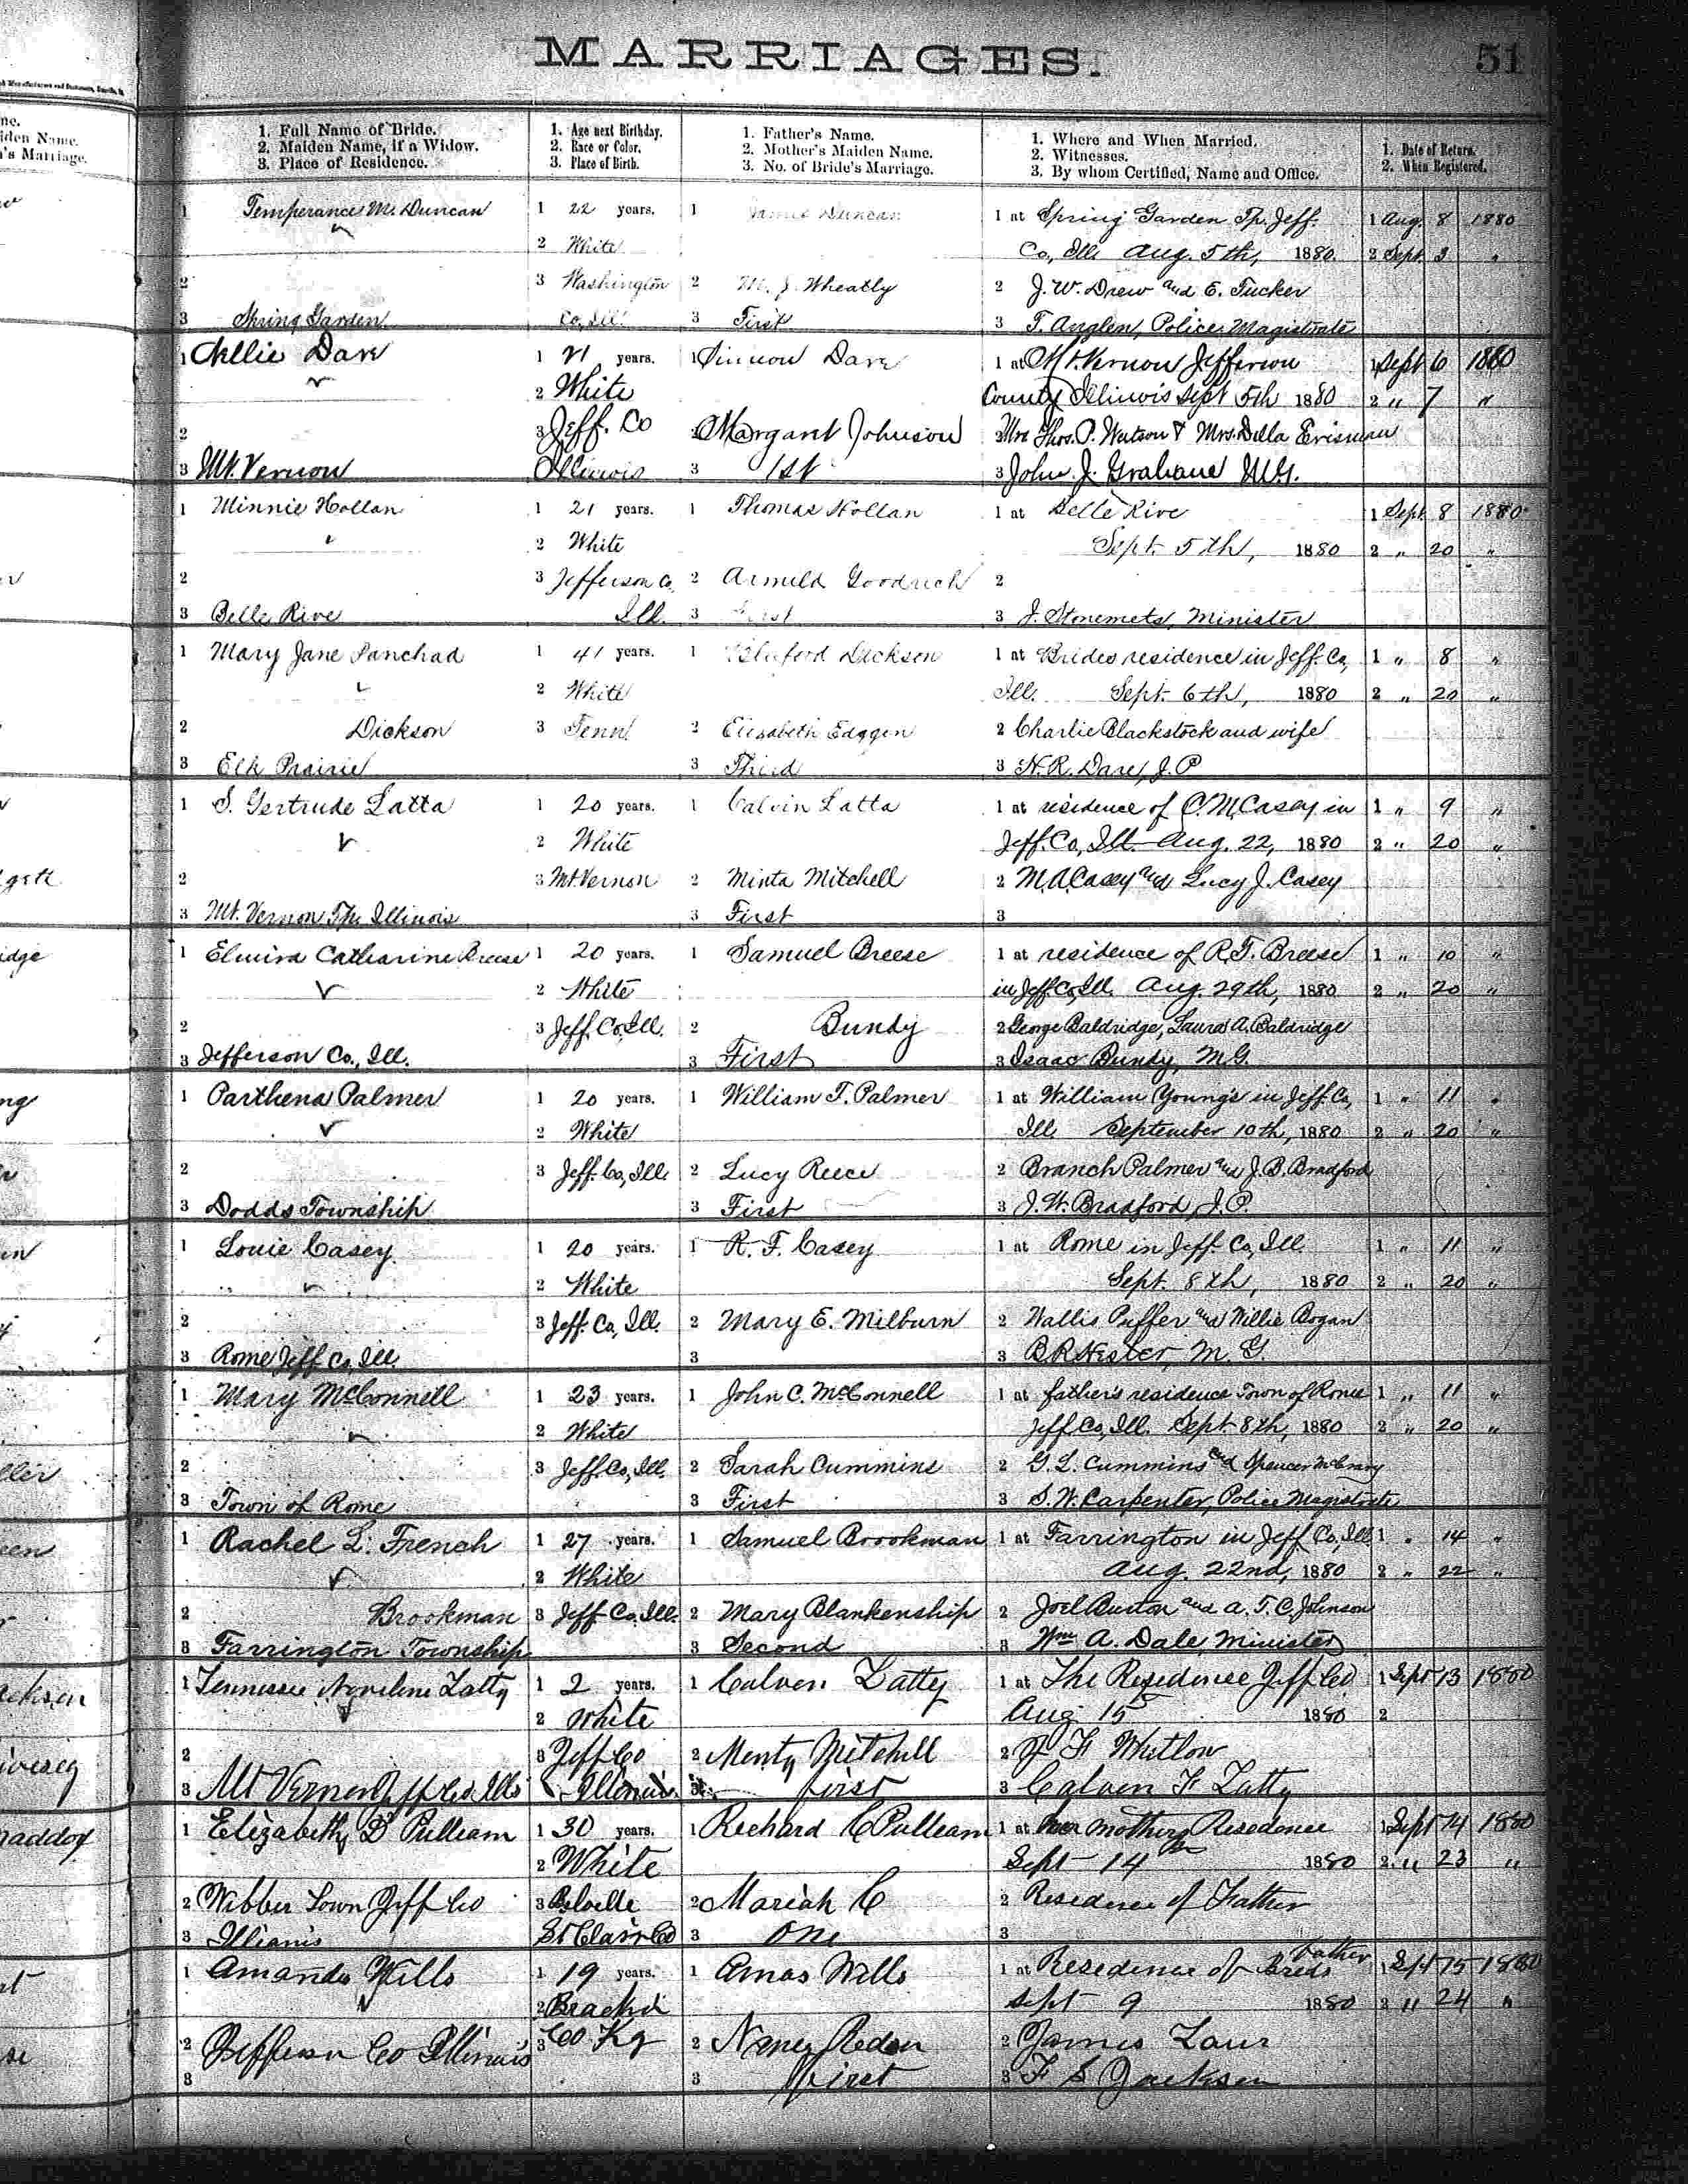 MARRIAGES.
51
1. Full Name of Bride.
2. Maiden Name, if a Widow.
3. Place of Residence.
1. Age next Birthday.
2. Race or Color.
3. Place of Birth.
1. Father's Name.
2. Mother's Maiden Name.
3. No. of Bride's Marriage.
1. Where and When Married.
2. Witnesses.
3. By whom Certified, Name and Office.
1. Date of Return.
2. When Registered.
1 Temperance M. Duncan 1 22 years. 1 James Duncan 1 at Spring Garden Tp. Jeff. 1 Aug. 8 1880
2 White Co., Ill. Aug. 5th, 1880. 2 Sept. 3 "
2 3 Washington 2 M. J. Wheatly 2 J. W. Drew and E. Tucker
3 Spring Garden Co., Ill. 3 First 3 T. Anglen, Police Magistrate
1 Nellie Dare 1 21 years. 1 Sinnon Dare 1 at Mt. Vernon Jefferson 1 Sept 6 1880
2 White County Illinois Sept 5th 1880 2 " 7 "
2 3 Jeff. Co 2 Margant Johnson 2 Mrs Thos. P. Watson & Mrs. Della Erisman
3 Mt. Vernon Illinois 3 1st 3 John J. Grahame M.G.
1 Minnie Hollan 1 21 years. 1 Thomas Hollan 1 at Belle Rive 1 Sept 8 1880
2 White Sept. 5th, 1880 2 " 20 "
2 3 Jefferson Co, 2 Armild Goodrich 2
3 Belle Rive Ill. 3 First 3 J. Stonemets, Minister
1 Mary Jane Panchad 1 41 years. 1 Bluford Dickson 1 at Brides residence in Jeff. Co, 1 " 8 "
2 White Ill. Sept. 6th, 1880 2 " 20 "
2 Dickson 3 Tenn. 2 Elisabeth Edggen 2 Charlie Blackstock and wife
3 Elk Prairie 3 Third 3 H. R. Dare, J. P.
1 S. Gertrude Latta 1 20 years. 1 Calvin Latta 1 at residence of C. M. Casey in 1 " 9 "
2 White Jeff. Co, Ill. Aug. 22, 1880 2 " 20 "
2 3 Mt. Vernon 2 Minta Mitchell 2 M. A. Casey and Lucy J. Casey
3 Mt. Vernon Tp. Illinois 3 First 3
1 Elmira Catharine Breese 1 20 years. 1 Samuel Breese 1 at residence of R. T. Breese 1 " 10 "
2 White in Jeff. Co, Ill. Aug. 29th, 1880 2 " 20 "
2 3 Jeff. Co, Ill. 2 Bundy 2 George Baldridge, Laura A. Baldridge
3 Jefferson Co., Ill. 3 First 3 Isaac Bundy, M.G.
1 Parthena Palmer 1 20 years. 1 William T. Palmer 1 at William Young's in Jeff. Co, 1 " 11 "
2 White Ill. September 10th, 1880 2 " 20 "
2 3 Jeff. Co, Ill. 2 Lucy Reece 2 Branch Palmer and J. B. Bradford
3 Dodds Township 3 First 3 J. W. Bradford, J. P.
1 Louie Casey 1 20 years. 1 R. F. Casey 1 at Rome in Jeff. Co, Ill. 1 " 11 "
2 White Sept. 8th, 1880 2 " 20 "
2 3 Jeff. Co, Ill. 2 Mary E. Milburn 2 Wallis Puffer and Willie Bogan
3 Rome Jeff Co, Ill. 3 3 B R Hester, M. G.
1 Mary McConnell 1 23 years. 1 John C. McConnell 1 at father's residence Town of Rome 1 " 11 "
2 White Jeff Co, Ill. Sept. 8th, 1880 2 " 20 "
2 3 Jeff. Co, Ill. 2 Sarah Cummins 2 G. L. Cummins and Spencer McCrary
3 Town of Rome 3 First 3 S. W. Carpenter, Police Magistrate
1 Rachel L. French 1 27 years. 1 Samuel Brookman 1 at Farrington in Jeff Co, Ill. 1 " 14 "
2 White Aug. 22nd, 1880 2 " 22 "
2 Brookman 3 Jeff Co, Ill. 2 Mary Blankenship 2 Joel Burton and A. T. C. Johnson
3 Farrington Township 3 Second 3 Wm A. Dale, Minister
1 Tennessee Latty 1 2 years. 1 Calven Latty 1 at The Residence Jeff Co 1 Sept 13 1880
2 White Aug 15 1880 2
2 3 Jeff Co 2 Menty Mitchill 2 F Whitlow
3 Mt Vernon Jeff Co Ills Illinois 3 first 3 Calven F Latty
1 Elizabeth D Pulleam 1 30 years. 1 Richard C Pulleam 1 at her mothers Resedence 1 Sept 14 1880
2 White Sept 14 1880 2 " 23 "
2 Webber Town Jeff Co 3 Belville 2 Mariah C 2 Resedence of Father
3 Illianis St Clair Co 3 One 3
1 Amanda Wills 1 19 years. 1 Amos Wills 1 at Resedence of Breds Father 1 Sept 15 1880
2 Brackin Sept 9 1880 2 " 24 "
2 Jefferson Co Illinois 3 Co Ky 2 Nancy 2 James
3 3 first 3 F S Jackson